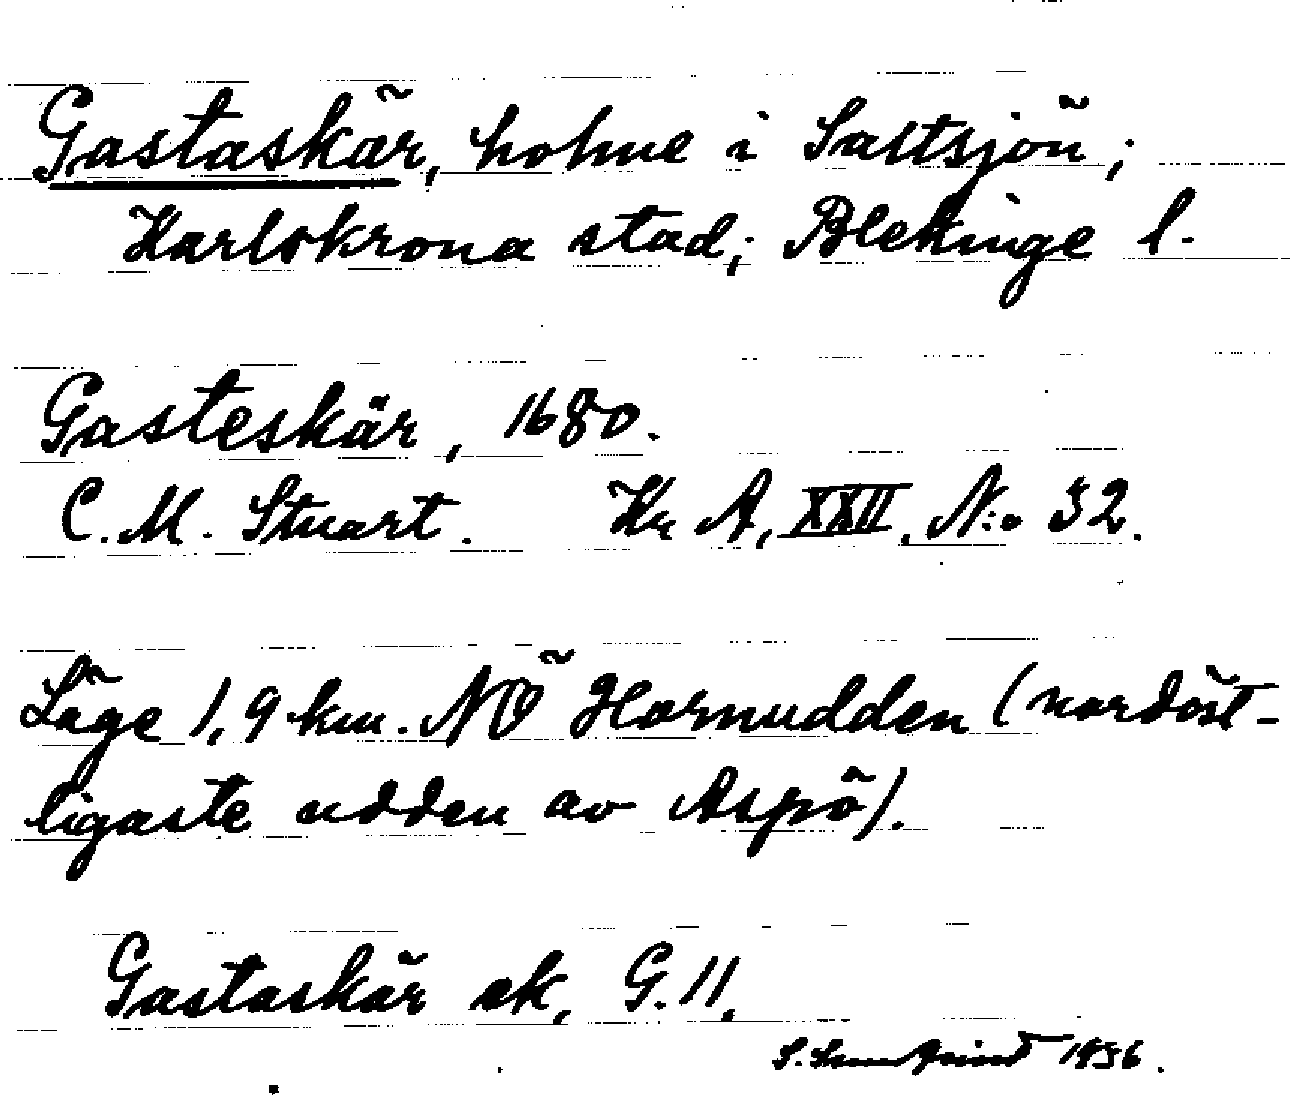 Gastaskär, holme i Saltsjön;
Karlskrona stad; Blekinge l.
Gasteskär, 1680.
C. M. Stuart. Kr A, XXII, N:o 52.
Läge 1,9 km. NÖ Hornudden (nordöst-
ligaste udden av Aspö).
Gastaskär ek, G. 11.
S. 1956.